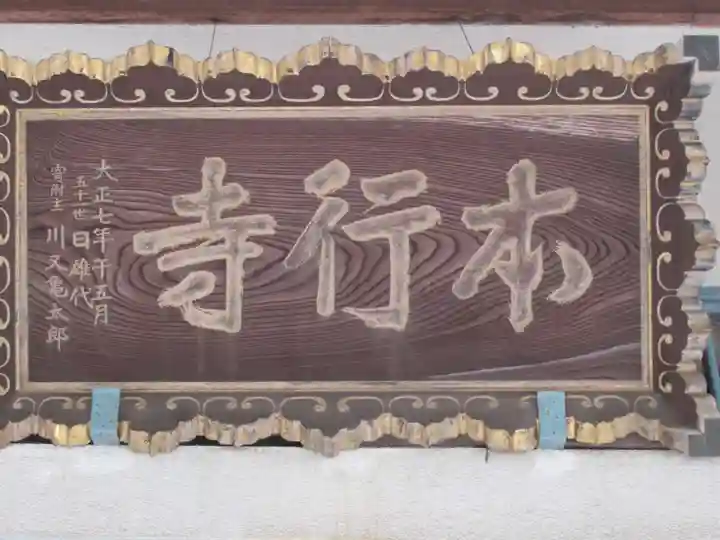 本行寺
大正七年午五月
五十世日雄代
寄附主川又亀太郎